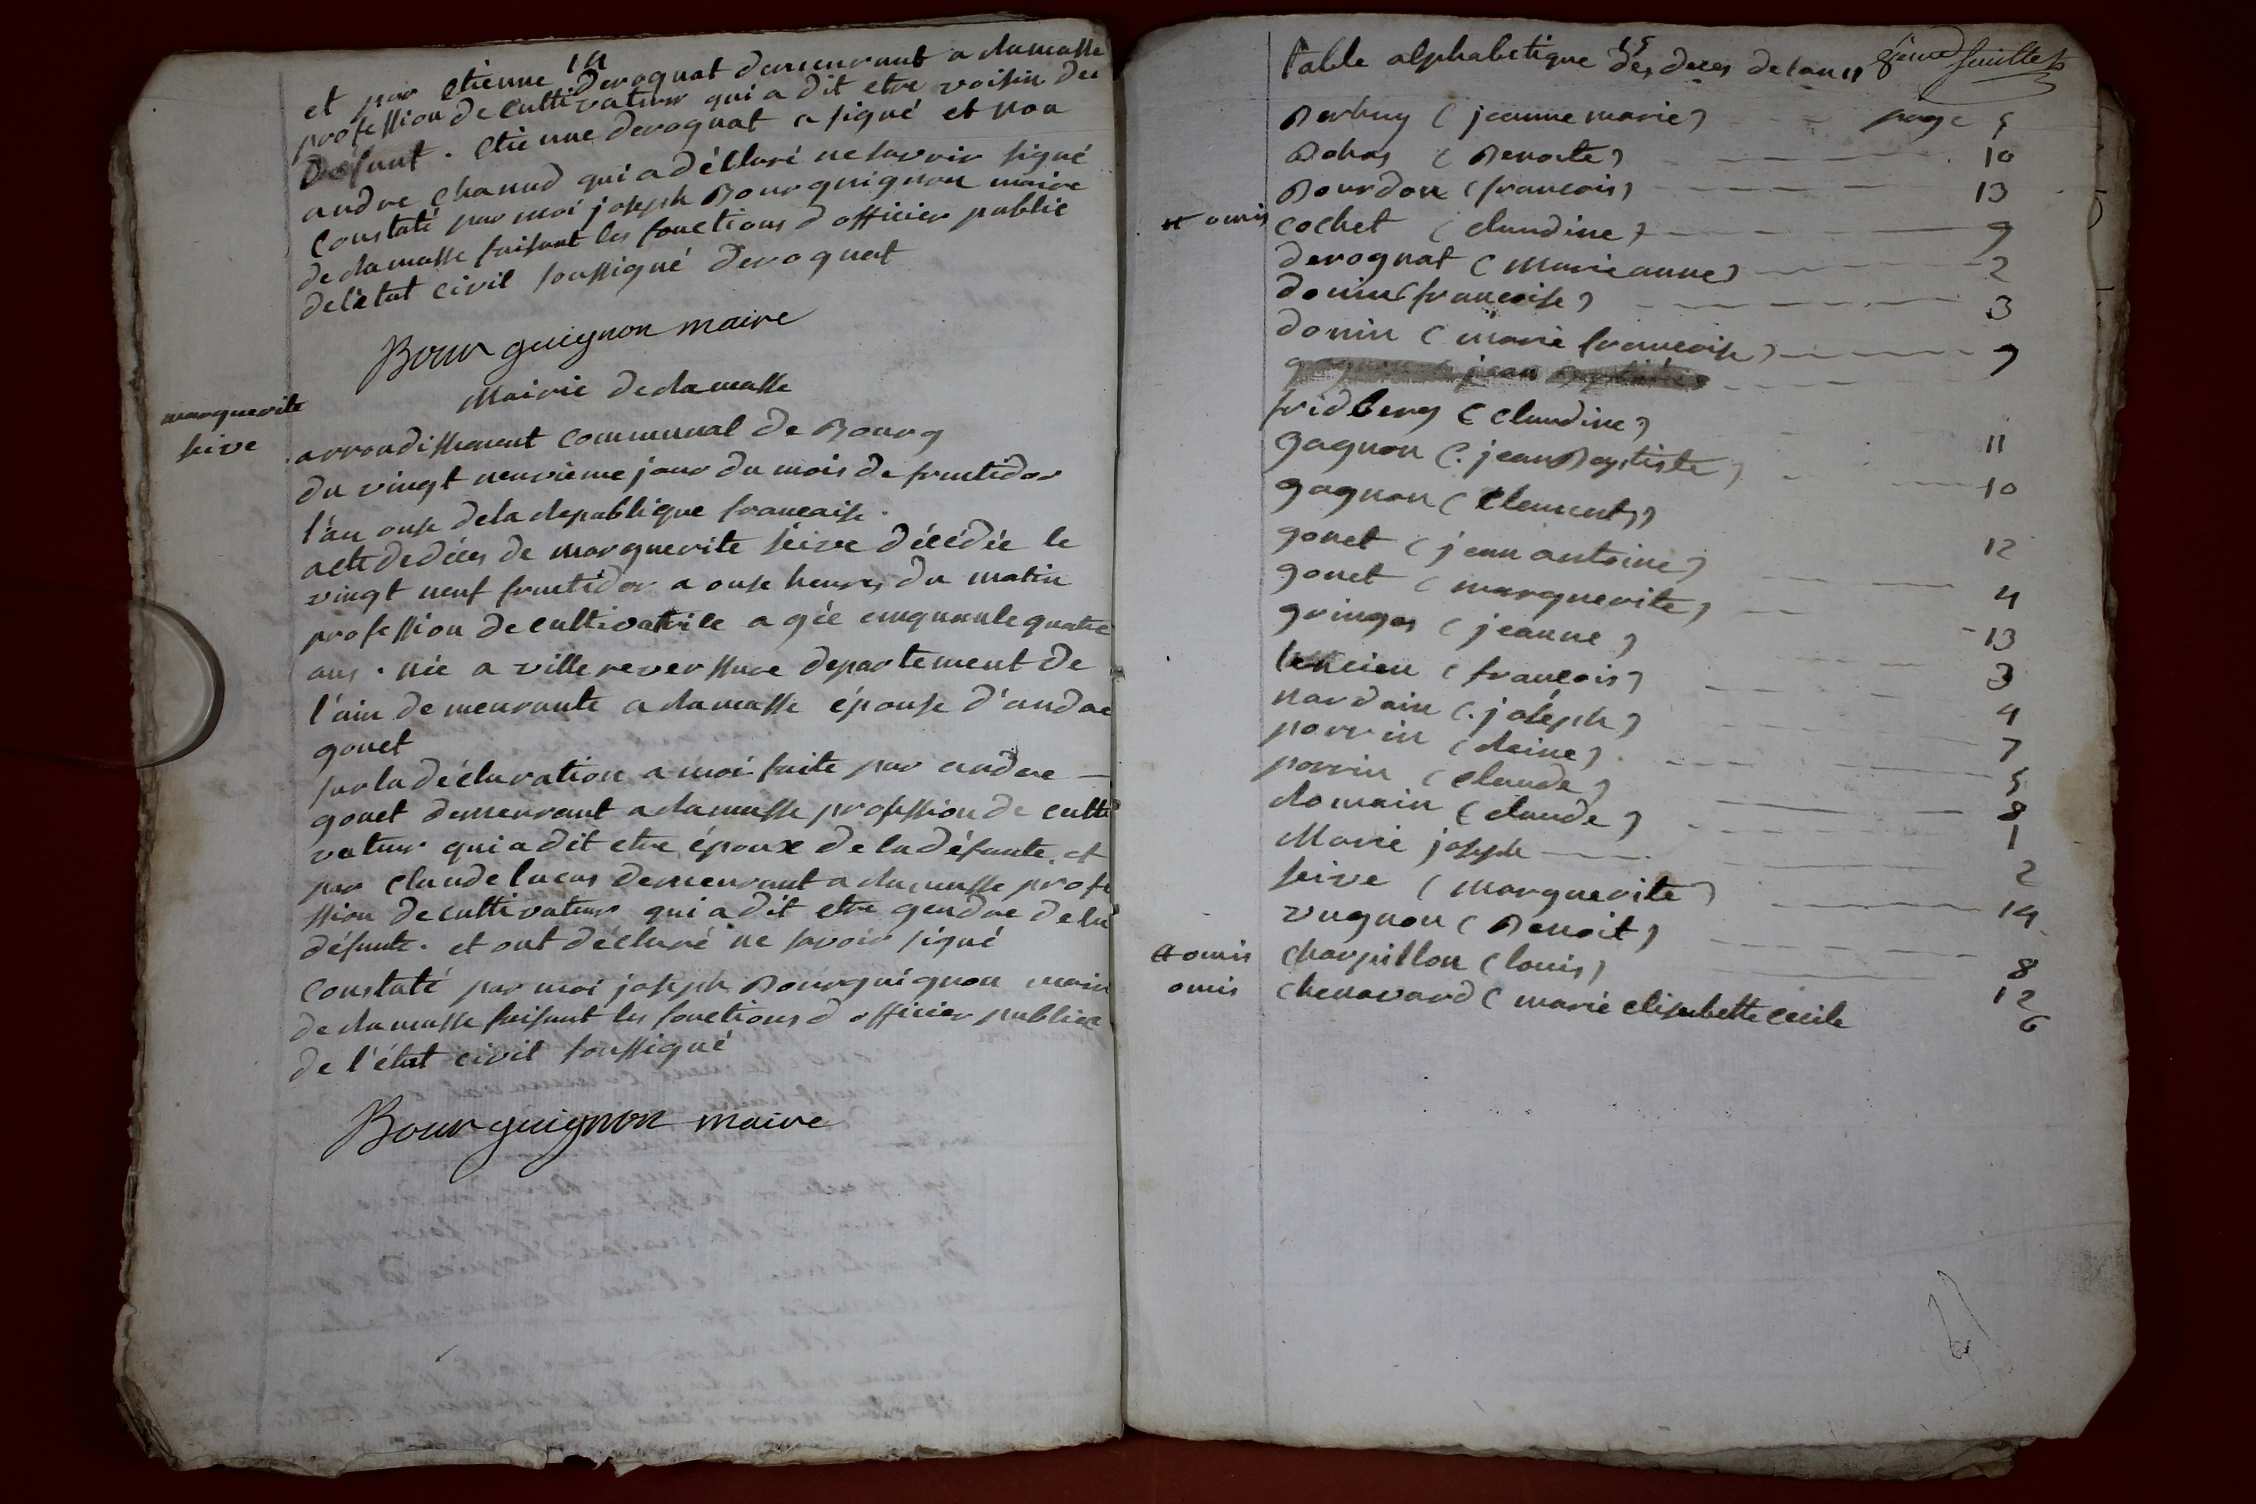 14
et par etienne deroquat demeurant a damasse
profession de cultivateur qui a dit etre voisin du
defunt. etienne deroquat a signé et non
andre chanud qui a déclaré ne savoir signé
Constaté par moi joseph Bourguignon maire
de damasse faisant les fonctions d officier public
de l'état civil soussigné deroquat
Bourguignon maire
Mairie de damasse
marguerite
seive
arrondissement Communal de Bourg
du vingt neuvieme jour du mois de fructidor
l'an onse de la Republique francaise.
acte de déces de marguerite seive décédée le
vingt neuf fructidor a onse heures du matin
profession de cultivatrice agée cinquante quatre
ans. née a ville reverssure departement de
l'ain demeurante a damasse épouse d'andre
gouet
sur la déclaration a moi faite par andre
gouet demeurant a damasse profession de culti
vateur qui a dit etre époux de la défunte. et
par Claude lucas demeurant a damasse profe
ssion de cultivateur qui a dit etre gendre de la
défunte. et ont déclaré ne savoir signé
Constaté par moi joseph Bourguignon maire
de damasse faisant les fonctions d officier public
de l'état civil soussigné
Bourguignon maire
15
table alphabetique des deces de lan 11 8eme feuillet
(jeanne marie) page 5
(Benoite) 10
Bourdon (francois) 13
omis cochet (claudine) 9
deroquat (Marie anne) 2
donin (francoise) 3
donin (marie francoise) 7
jean
fridberg (Claudine)
gagnon (jean Baptiste) 11
gagnon (Clement) 10
gouet (jean antoine) 12
gouet (marguerite) 4
gringos (jeanne) 13
(francois) 3
nardain (joseph) 4
porrin (Reine) 7
porrin (Claude) 5
Romain (claude) 8
Marie joseph 1
seive (marguerite) 2
vugnon (Benoit) 14
omis charpillon (louis) 8
omis chenavard (marie elisabette cecile 12
6